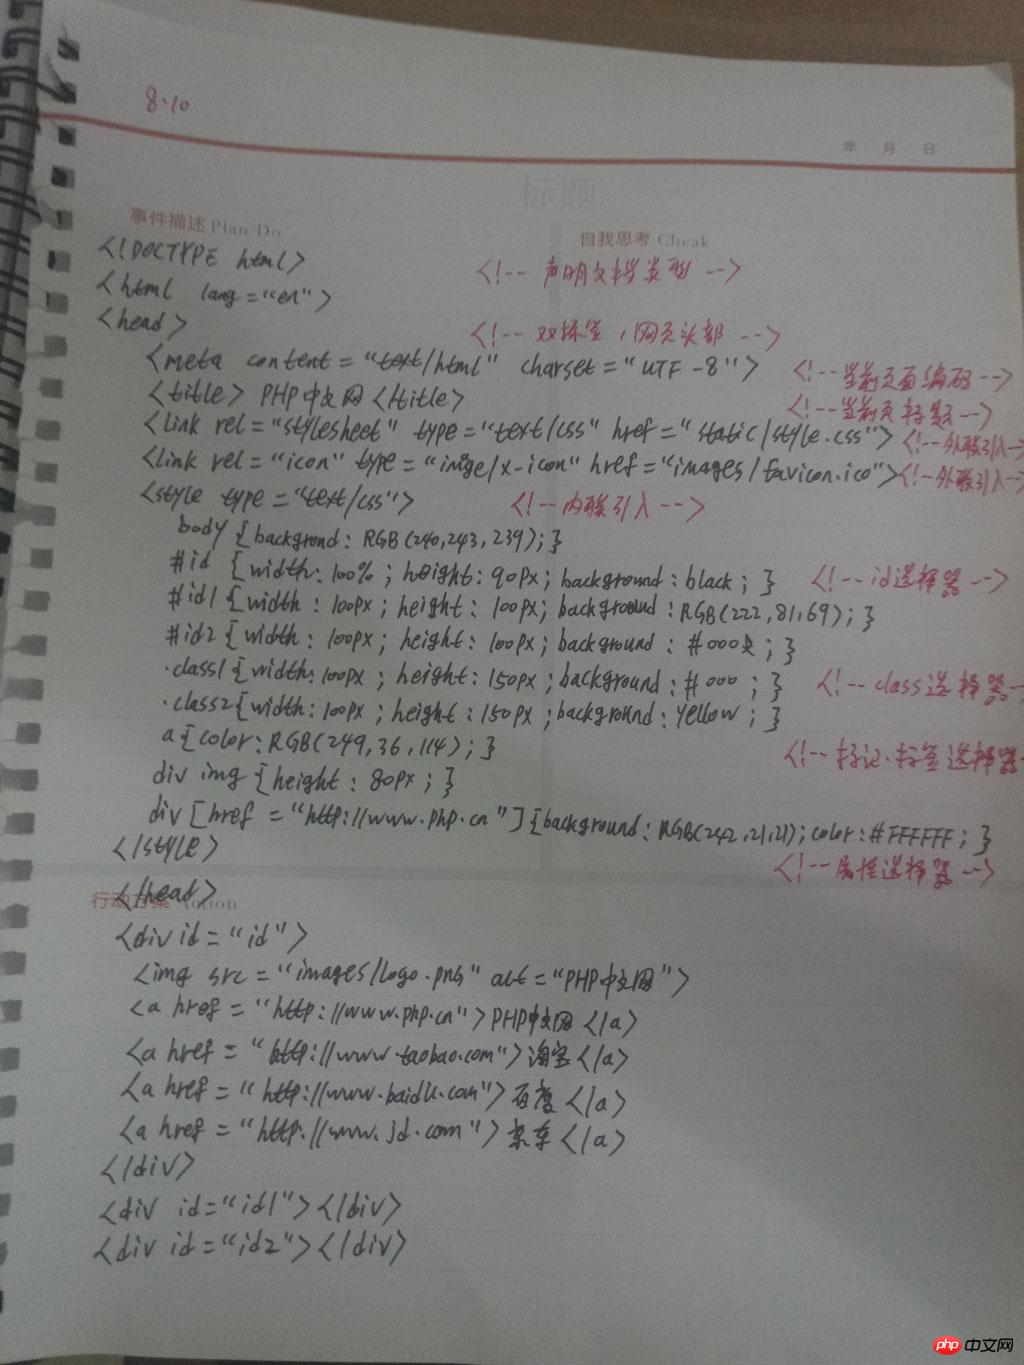 8.10
年 月 日
标题
事件描述 Plan/Do
自我思考 Cheak
<!DOCTYPE html> <!-- 声明文档类型 -->
<html lang="en">
<head> <!-- 双标签，网页头部 -->
<meta content="text/html" charset="UTF-8"> <!--当前页面编码-->
<title>PHP中文网</title> <!--当前页标题-->
<link rel="stylesheet" type="text/css" href="static/style.css"> <!--外联引入-->
<link rel="icon" type="image/x-icon" href="images/favicon.ico"> <!--外联引入-->
<style type="text/css"> <!--内联引入-->
body{backgrond: RGB(240,243,239);}
#id {width:100%; height:90px; background:black;} <!--id选择器-->
#id1{width:100px; height:100px; background:RGB(222,81,69);}
#id2{width:100px; height:100px; background:#000;}
.class1{width:100px; height:150px; background:#000;} <!--class选择器--
.class2{width:100px; height:150px; background:yellow;}
a{color:RGB(249,36,114);} <!--标记.标签选择器-
div img{height:80px;}
div[href="http://www.php.cn"]{background:RGB(242,21,21);color:#FFFFFF;}
</style> <!--属性选择器-->
</head>
行动方案 Action
<div id="id">
<img src="images/logo.png" alt="PHP中文网">
<a href="http://www.php.cn">PHP中文网</a>
<a href="http://www.taobao.com">淘宝</a>
<a href="http://www.baidu.com">百度</a>
<a href="http://www.jd.com">京东</a>
</div>
<div id="id1"></div>
<div id="id2"></div>
php 中文网